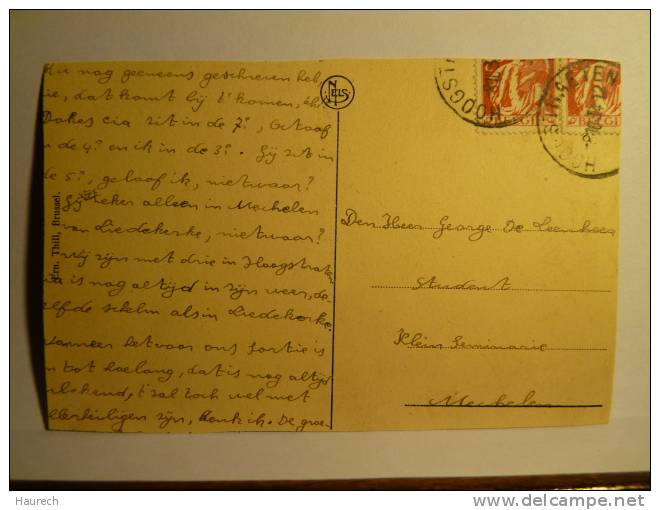 nog geeneens geschreven heb
dat komt bij t' komen,
zit in de 7e, Octaaf
de 4e en ik in de 3e. Gij zit in
de 5e, geloof ik, nietwaar?
Gij zeker alleen in Mechelen
van Liedekerke, nietwaar?
Wij zijn met drie in Hoogstraten
is nog altijd in zijn veer, de-
zelfde schelm als in Liedekerke.
wanneer het voor ons sortie is
tot hoelang, dat is nog altijd
t' zal toch wel met
Allerheiligen zijn, denk ik. De groe-
Ern. Thill, Brussel.
NELS
HOOGSTRATEN
BELGI
HOOGSTRATEN
BELGI
Den Heer George De
Student
Klein Seminarie
Mechelen
Haurech
delcampe.net